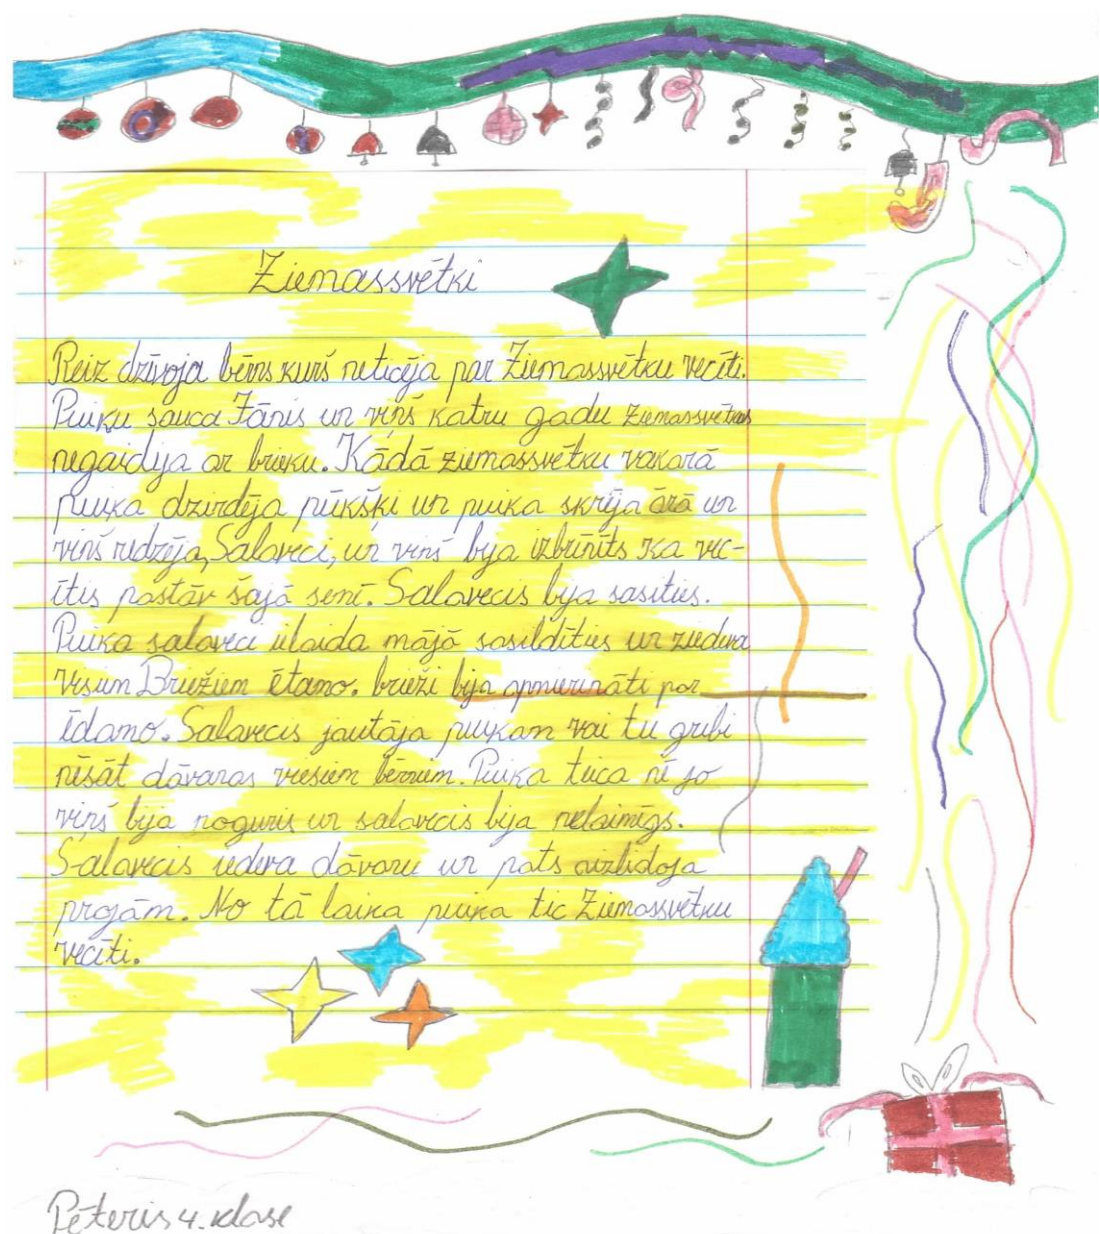 Ziemassvētki
Reiz dzīvoja bērns kurš neticēja par Ziemassvētku vecīti.
Puiku sauca Jānis un viņš katru gadu Ziemassvētkus
negaidija ar brieku. Kādā ziemassvētku vakarā
puika dzirdēja pūkšķi un puika skrēja ārā un
viņš redzēja, Salaveci, un viņš bija izbrīnīts ka vec-
ītis pastāv šajā senī. Salavecis bija sasities.
Puika salaveci ielaida mājā sasildīties un iedeva
visiem Briežiem ētamo. brieži bija apmierināti par
ēdamo. Salavecis jautāja puikam vai tu gribi
nēsāt dāvanas viesiem bērniem. Puika teica nē jo
viņš bija noguris un salavecis bija nelaimīgs.
Salavecis iedeva dāvanu un pats aizlidoja
projām. No tā laika puika tic Ziemassvētku
vecīti.
Pēteris 4. klase